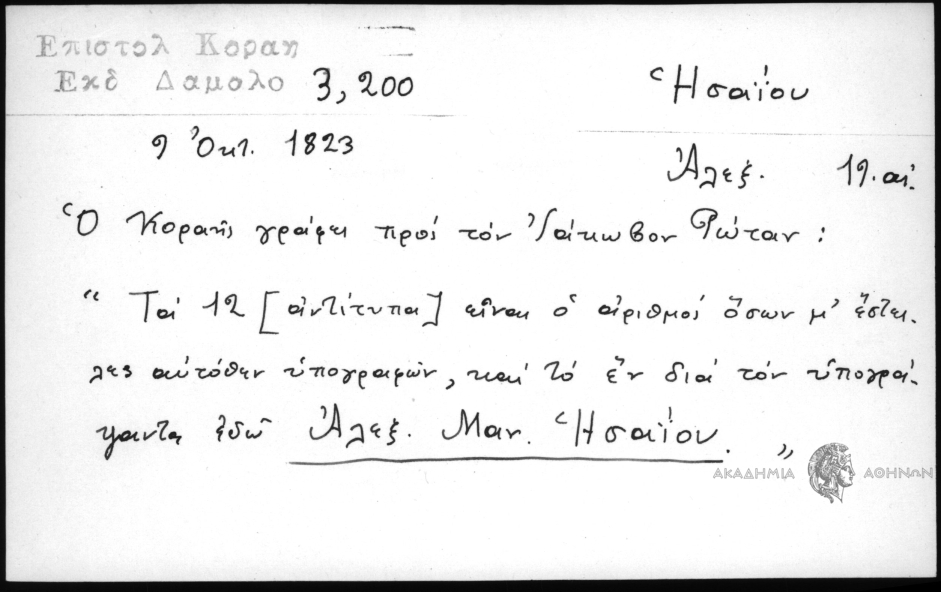 Επιστολ Κοραη
Εκδ Δαμολο 3,200
Ἡσαΐου
9 Ὀκτ. 1823
Ἀλεξ. 19. αἰ.
Ὁ Κοραῆς γράφει πρός τόν Ἰάκωβον Ρώταν :
“ Τά 12 [ἀντίτυπα] εἶναι ὁ ἀριθμός ὅσων μ' ἔστει-
λες αὐτόθεν ὑπογραφῶν, καί τό ἕν διά τόν ὑπογρά-
ψαντα ἐδῶ Ἀλεξ. Μαν. Ἡσαΐου. „
ΑΚΑΔΗΜΙΑ ΑΘΗΝΩΝ